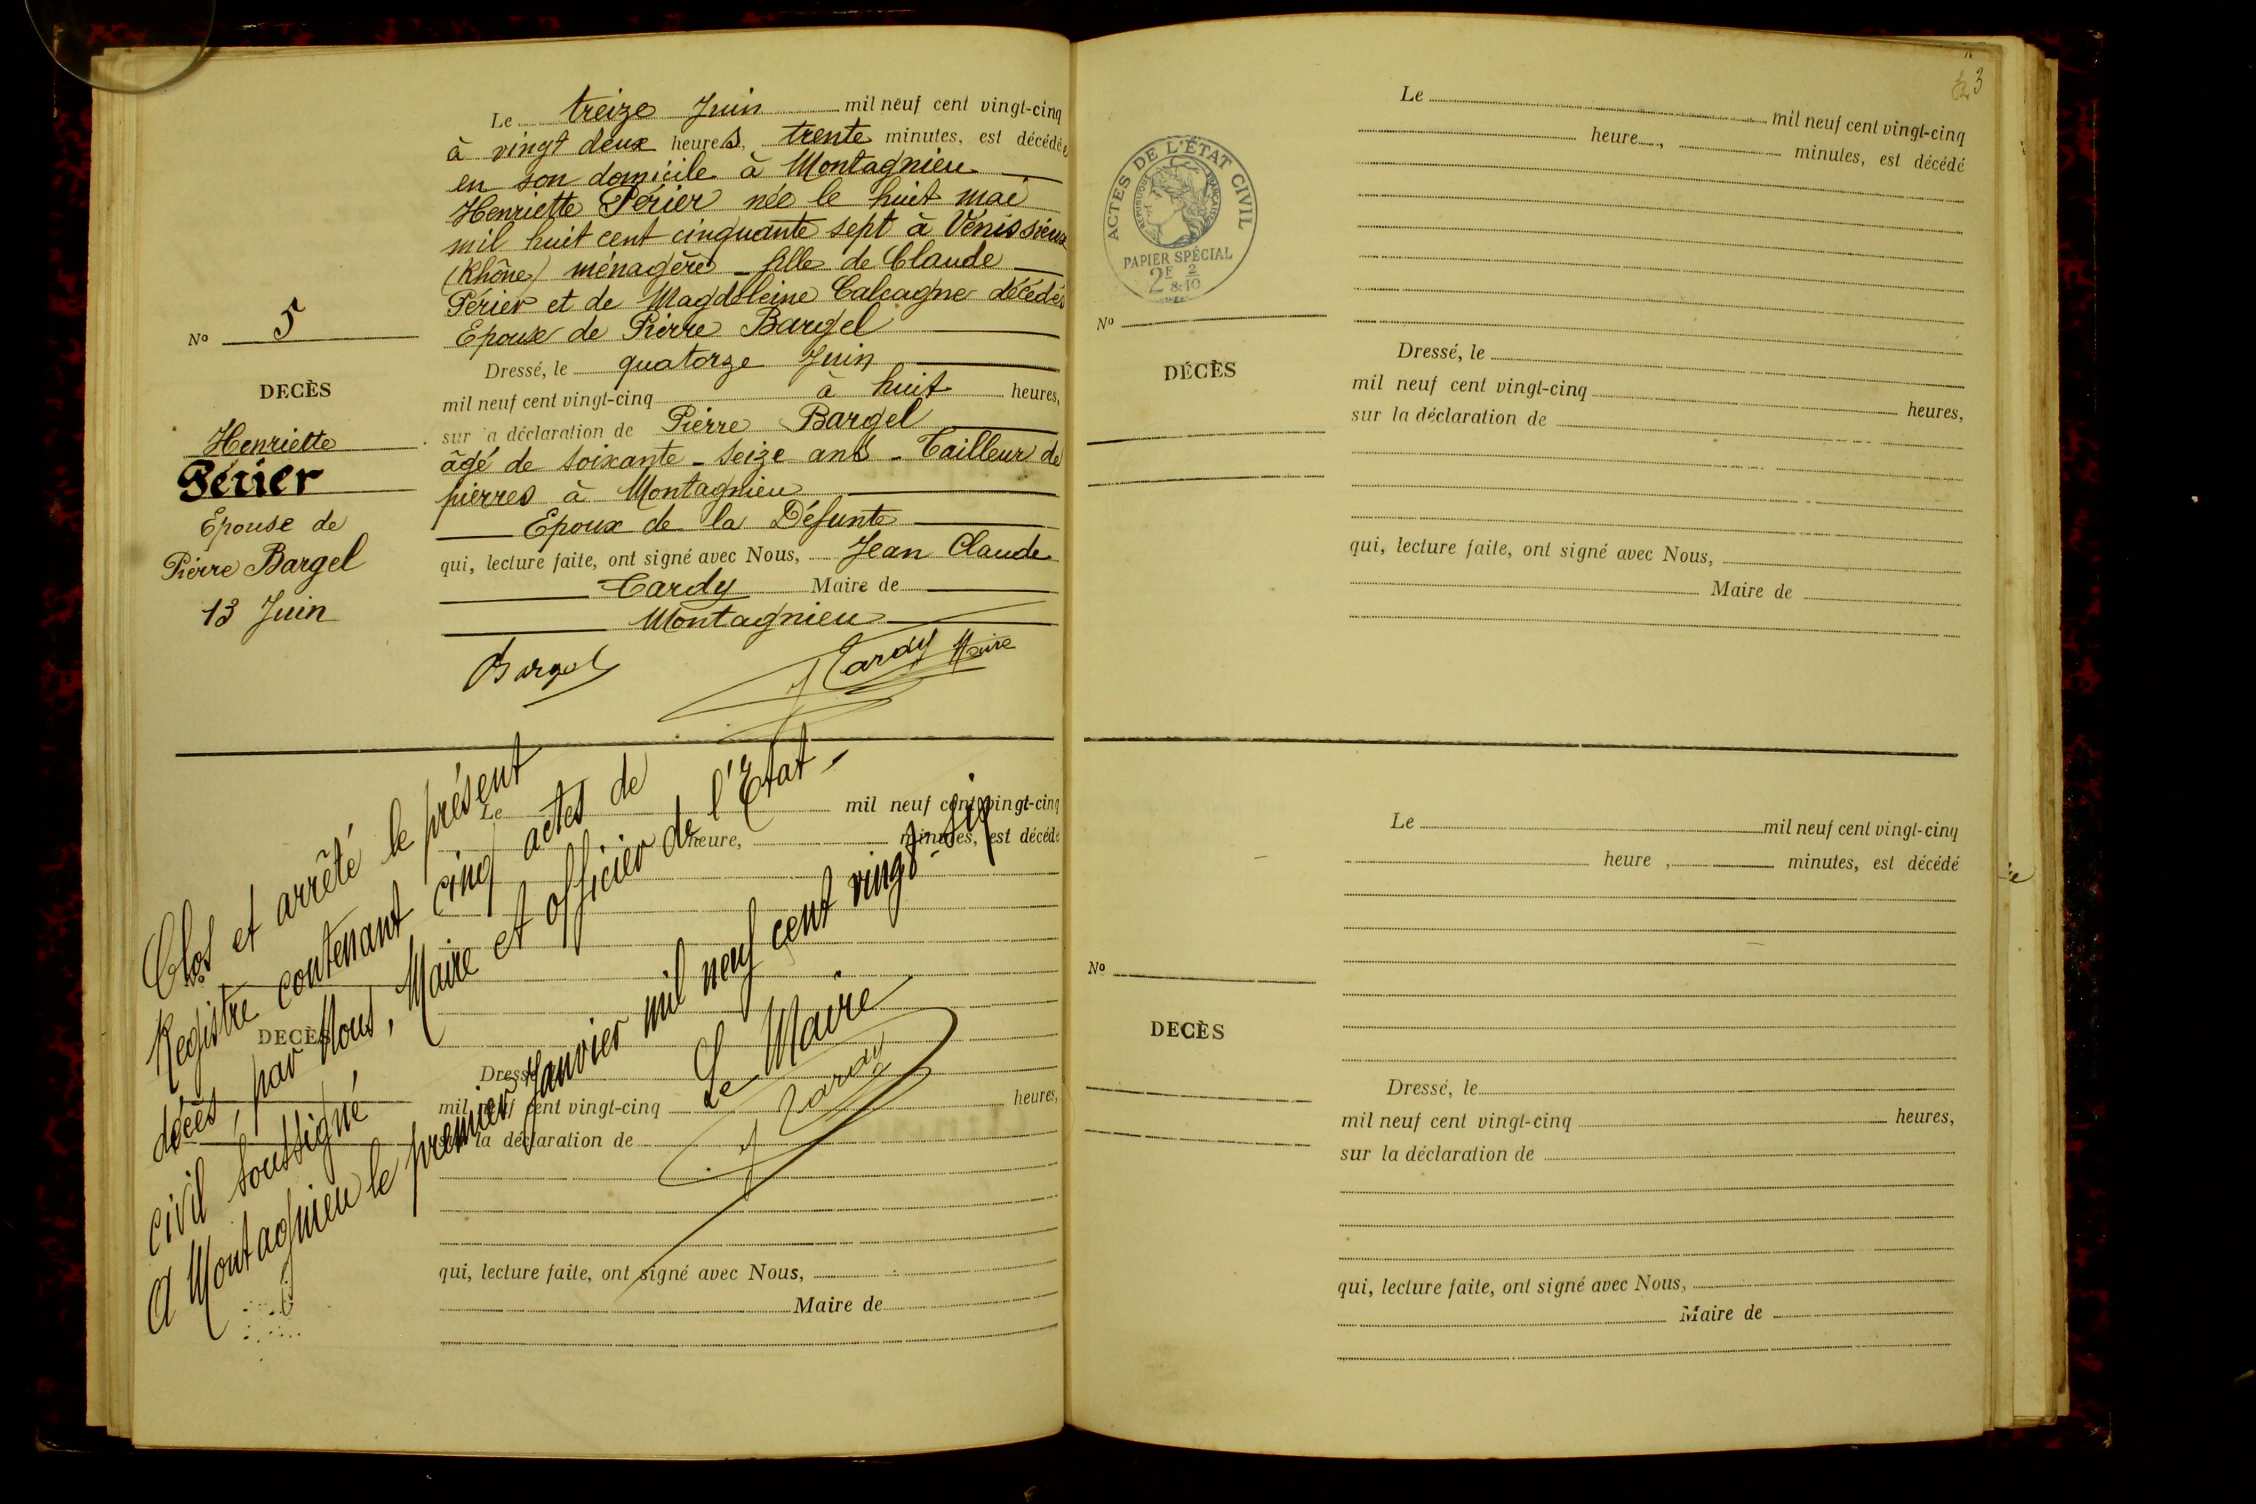 Le treize Juin mil neuf cent vingt-cinq
à vingt deux heures, trente minutes, est décédée
en son domicile à Montagnieu
Henriette Périer née le huit mai
mil huit cent cinquante sept à Vénissieux
(Rhône) ménagère _ fille de Claude
Périer et de Magdeleine Calcagne décédés
Epouse de Pierre Bargel
Dressé, le quatorze Juin
mil neuf cent vingt-cinq à huit heures,
sur la déclaration de Pierre Bargel
âgé de soixante - seize ans - Tailleur de
pierres à Montagnieu
Epoux de la Défunte
qui, lecture faite, ont signé avec Nous, Jean Claude
Tardy Maire de
Montagnieu
Bargel
Tardy Maire
No 5
DECÈS
Henriette
Périer
Epouse de
Pierre Bargel
13 Juin
Clos et arrêté le présent
Registre contenant cinq actes de
décès, par Nous, Maire et officier de l'Etat
civil soussigné
A Montagnieu le premier Janvier mil neuf cent vingt-six
Le Maire
Tardy
Le mil neuf cent vingt-cinq
heure, minutes, est décédé
No
DECÈS
Dressé
mil neuf cent vingt-cinq heures,
sur la déclaration de
qui, lecture faite, ont signé avec Nous,
Maire de
3
ACTES DE L'ÉTAT CIVIL
RÉPUBLIQUE FRANÇAISE
PAPIER SPÉCIAL
2F 2
&10
Le mil neuf cent vingt-cinq
heure , minutes, est décédé
No
DÉCÈS
Dressé, le
mil neuf cent vingt-cinq heures,
sur la déclaration de
qui, lecture faite, ont signé avec Nous,
Maire de
Le mil neuf cent vingt-cinq
heure , minutes, est décédé
No
DECÈS
Dressé, le
mil neuf cent vingt-cinq heures,
sur la déclaration de
qui, lecture faite, ont signé avec Nous,
Maire de